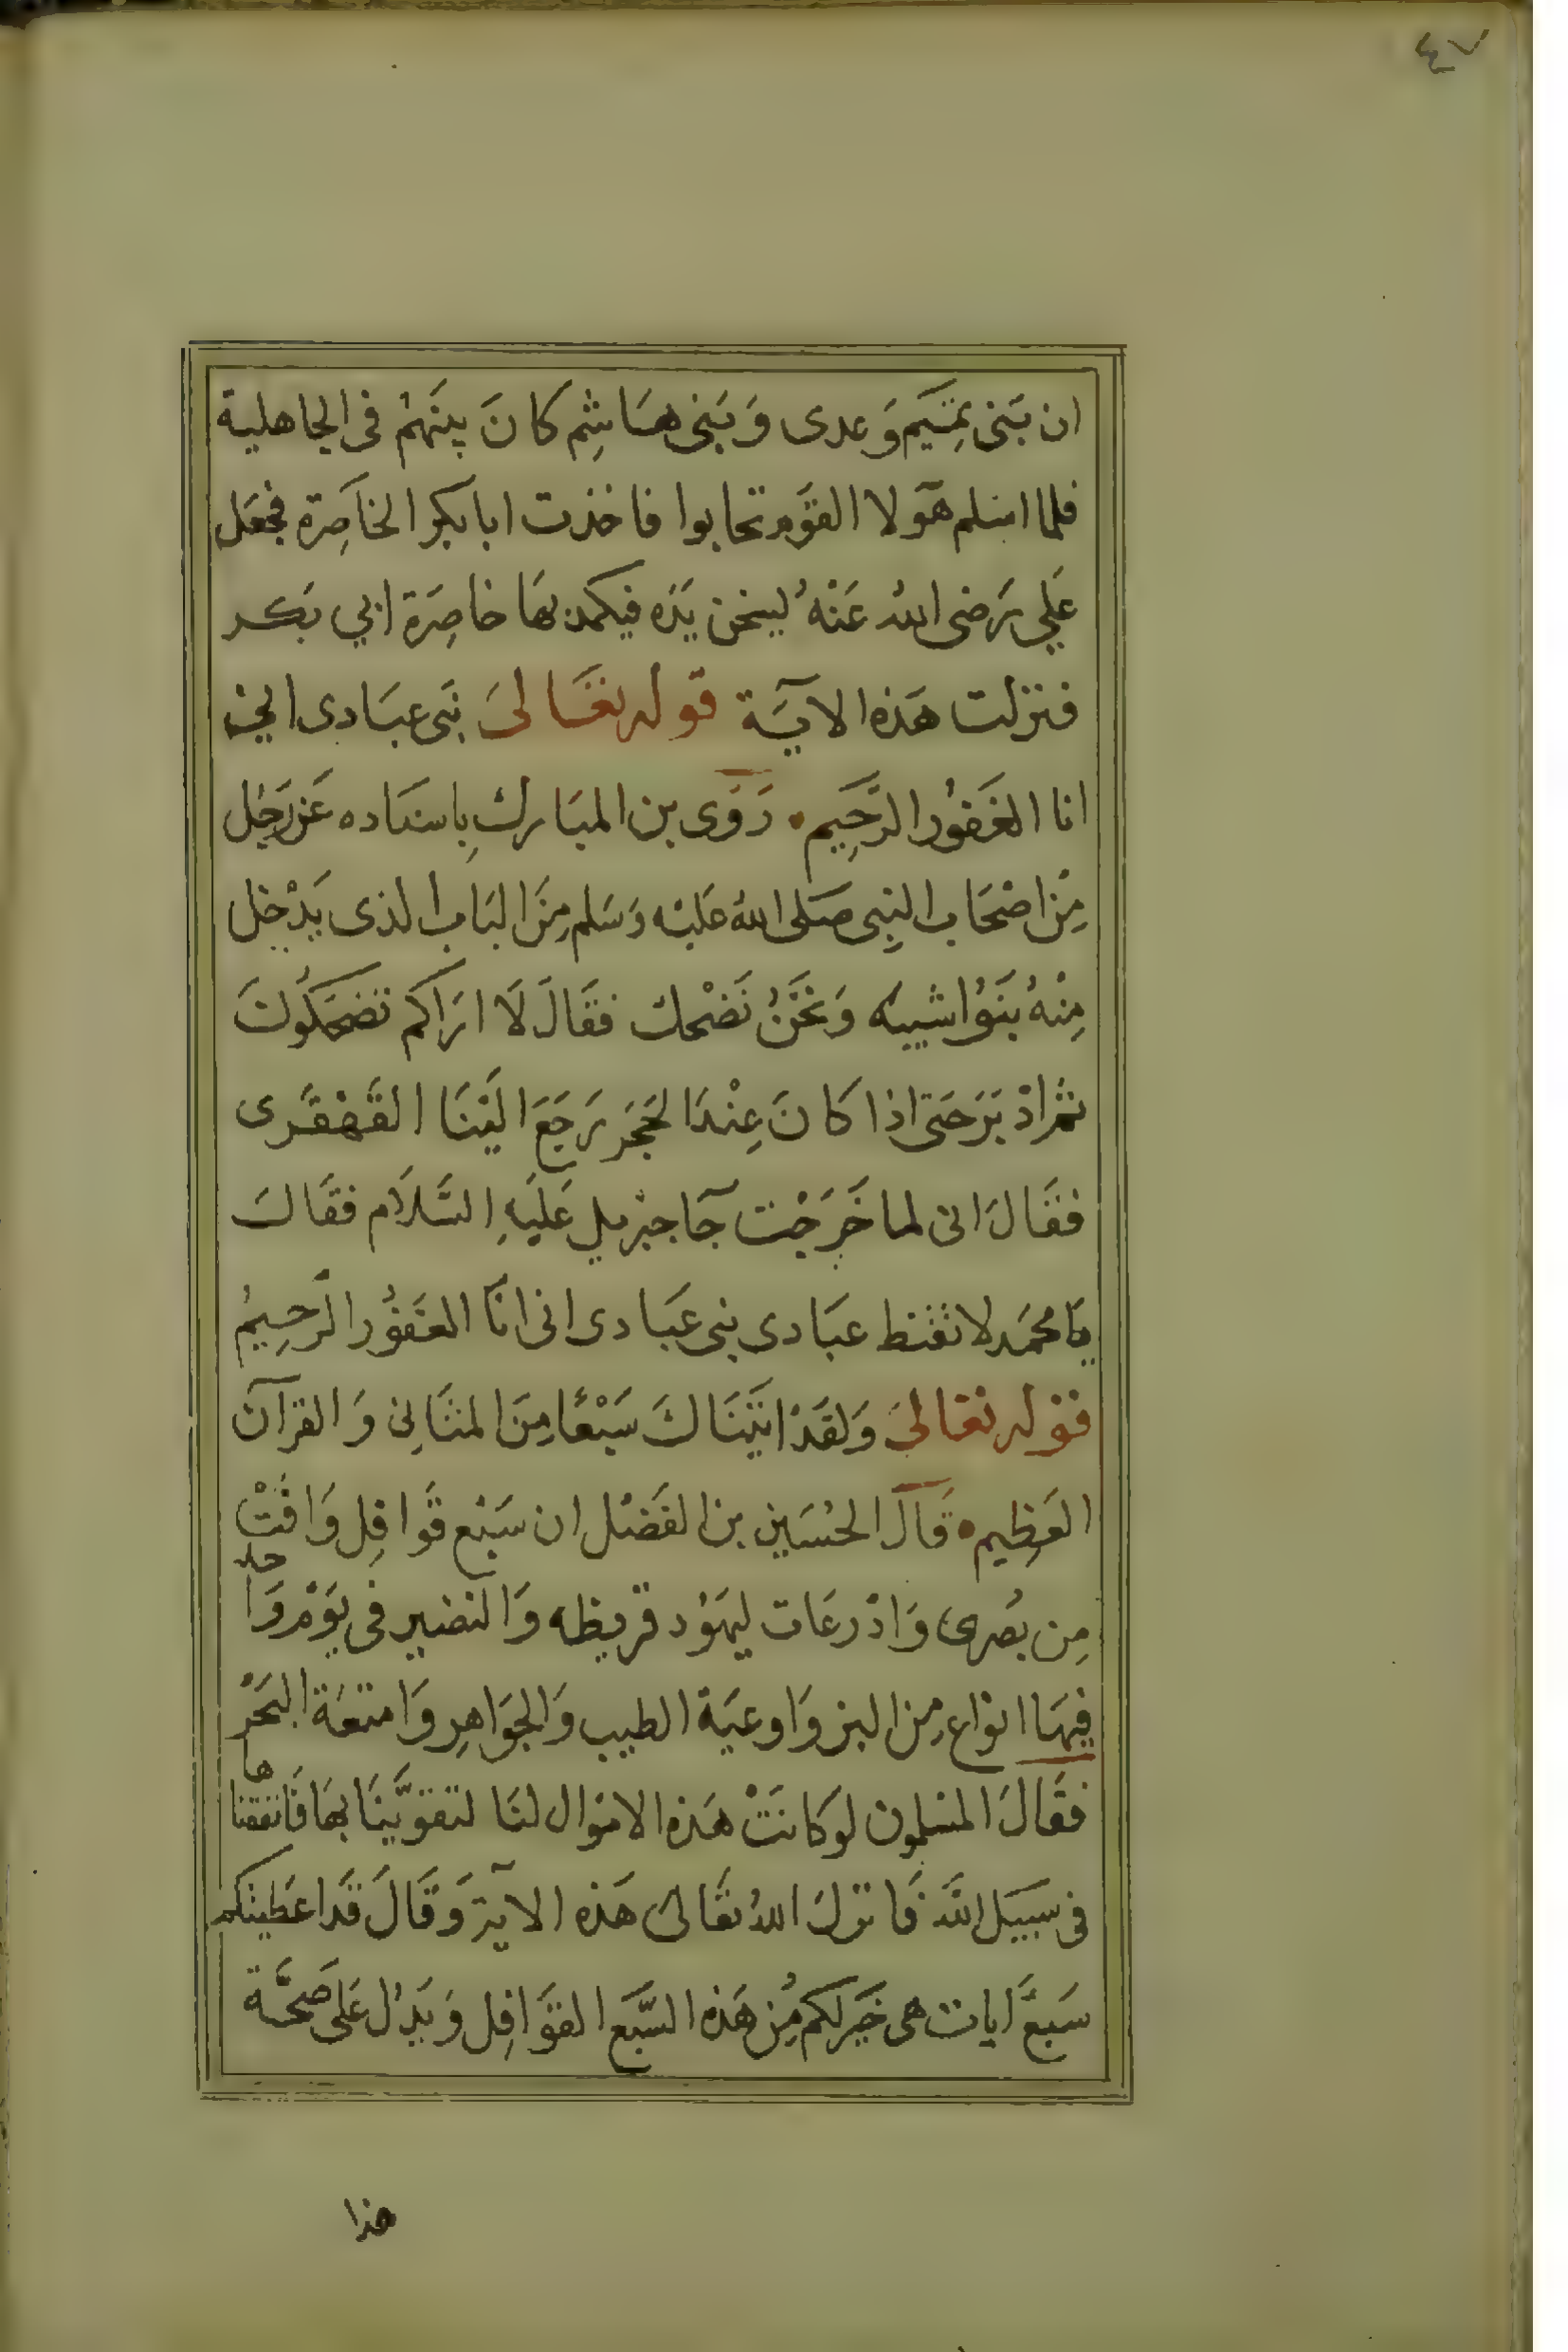 ٤٧
ان بَنى تمِتَيم وَعدى وَبَنِى هسَاشِم كانَ بينَهمْ فى الجاهلية
فلما اسْلم هَولا القَوْم تحابوا فاخذت ابابكر الخاَصِرَة فجعَل
عَلي رَضى اللهُ عَنْهُ ليسخن يَدَه فيكمد بهَا خاصِرَة ابي بَكر
فنزلت هَذه الآيَة قوله تعَالىَ نَبى عبَادى اني
انا الغَفوُر الرَّحَيِم رَوَى بن المبَارك بِاسنَاده عَن رَجُل
مِنْ اصْحَاب النِبى صَلى اللهُ عَليْه وَسَلم مِنَ البَاب الذى يَدْخل
مِنْهُ بَنوُا شيبه وَنحَنُ نَضْحك فقَالَ لَا ارَاكم تضحَكوُنَ
ثم ادْبَرَ حَتى اذا كانَ عِنْدَ الحَجَر رَجَعَ اليَنَا القَهْقَرى
فقَالَ انى لما خَرَجْت جَآ جبْريل عَلَيهِ السَّلاَم فقَالَ
يَا محمَد لا تقنط عبَادى نبى عبَادى انى انَا الغَفوُر الرَّحِيمُ
قوله تعَالىَ وَلقَدْ اتَيْنَاكَ سَبْعًا مِنَ المثَانِى وَالقرْآنَ
العَظِيم قَالَ الحُسَيْن بن الفَضْل ان سَبْع قوَافِل وَافَتْ
مِن بُصرى وَاذرعَات ليَهوُد قريظه وَالنضير فى يَوْم وَاحد
فِيهَا انوَاع مِن البز وَاوعيَة الطيب وَالجوَاهِر وَامتعَة البَحْر
فقَالَ المسْلموُن لوكانَتْ هَذه الاموَال لنَا لتقوَّينَا بهَا فَانفقناها
فى سبِيَل اللهَ فَانزلَ اللهُ تعَالى هَذه الآية وَقَالَ قَد اعَطيتكم
سَبعَ ايات هى خيَر لكم مِنْ هَذه السَّبَع القوَافِل وَيَدُل عَلى صَحَّة
هذا